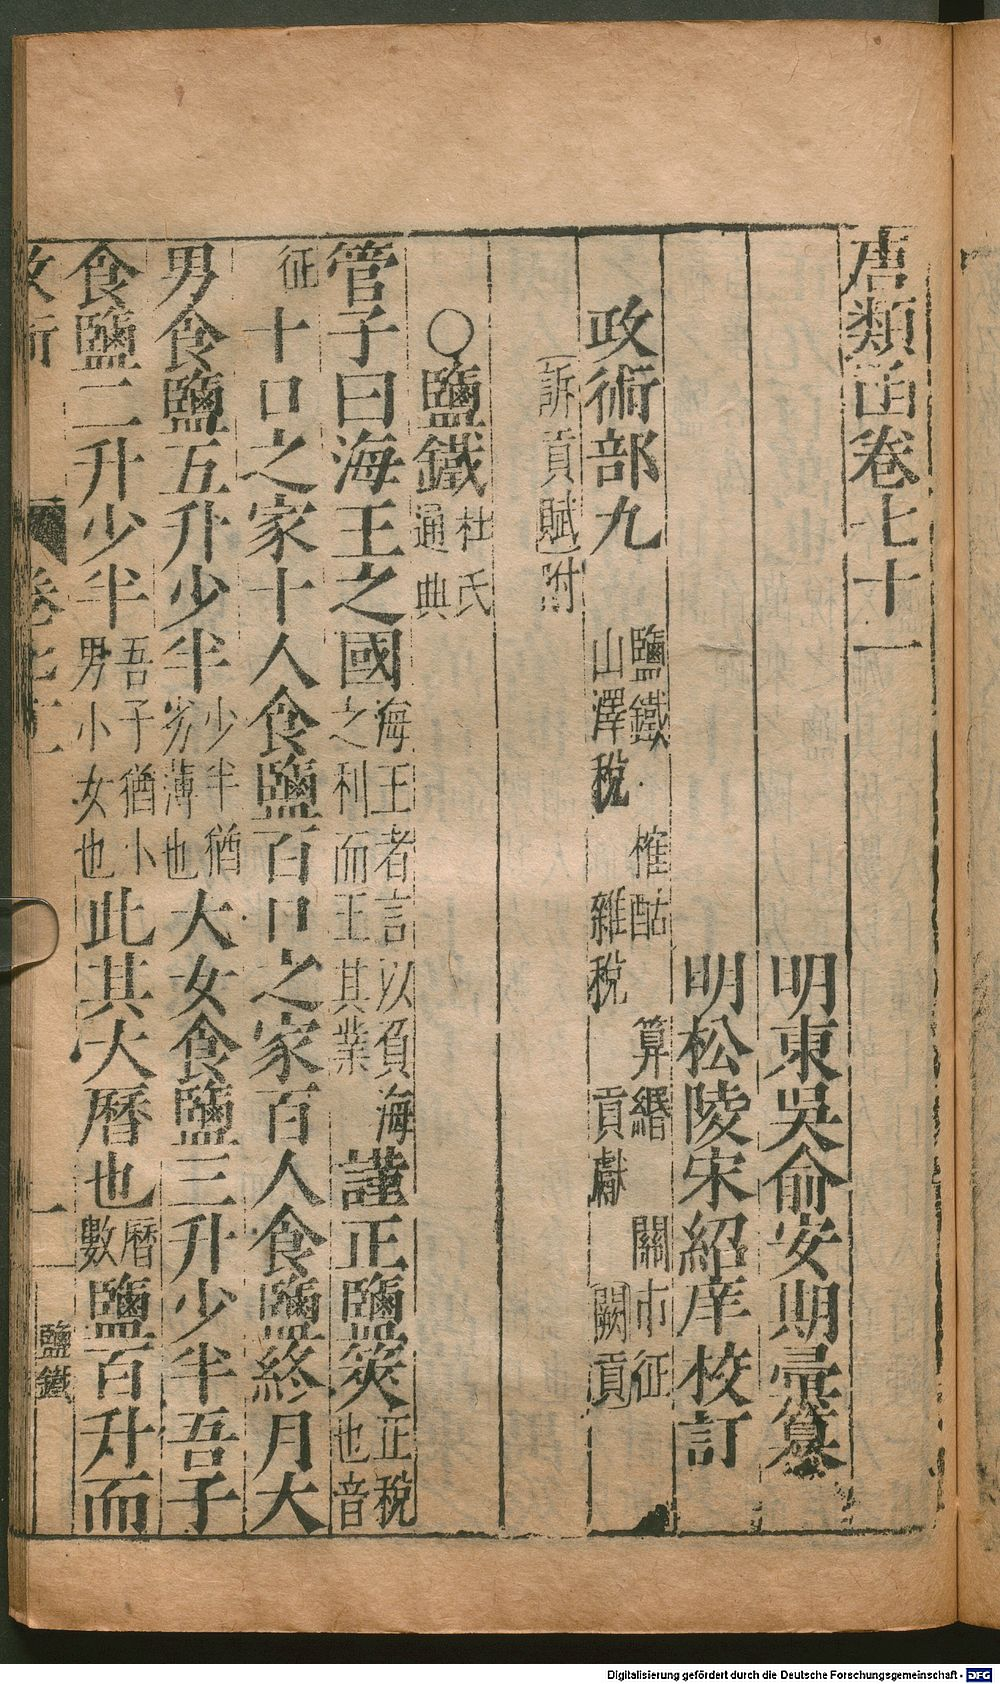 唐類函卷七十一
明東吳俞安期彙纂
明松陵宋紹庠校訂
政術部九 鹽鐵 榷酤 算緡 關市征 山澤稅 雜稅 貢獻 闕貢
訴貢賦附
○鹽鐵 杜氏通典
管子曰海王之國 海王者言以負海之利而王其業 謹正鹽筴 正稅也音
征 十口之家十人食鹽百口之家百人食鹽終月大
男食鹽五升少半 少半猶劣薄也 大女食鹽三升少半吾子
食鹽二升少半 吾子猶小男小女也 此其大曆也 曆數 鹽百升而
政術 卷七十一 一 鹽鐵
Digitalisierung gefördert durch die Deutsche Forschungsgemeinschaft - DFG